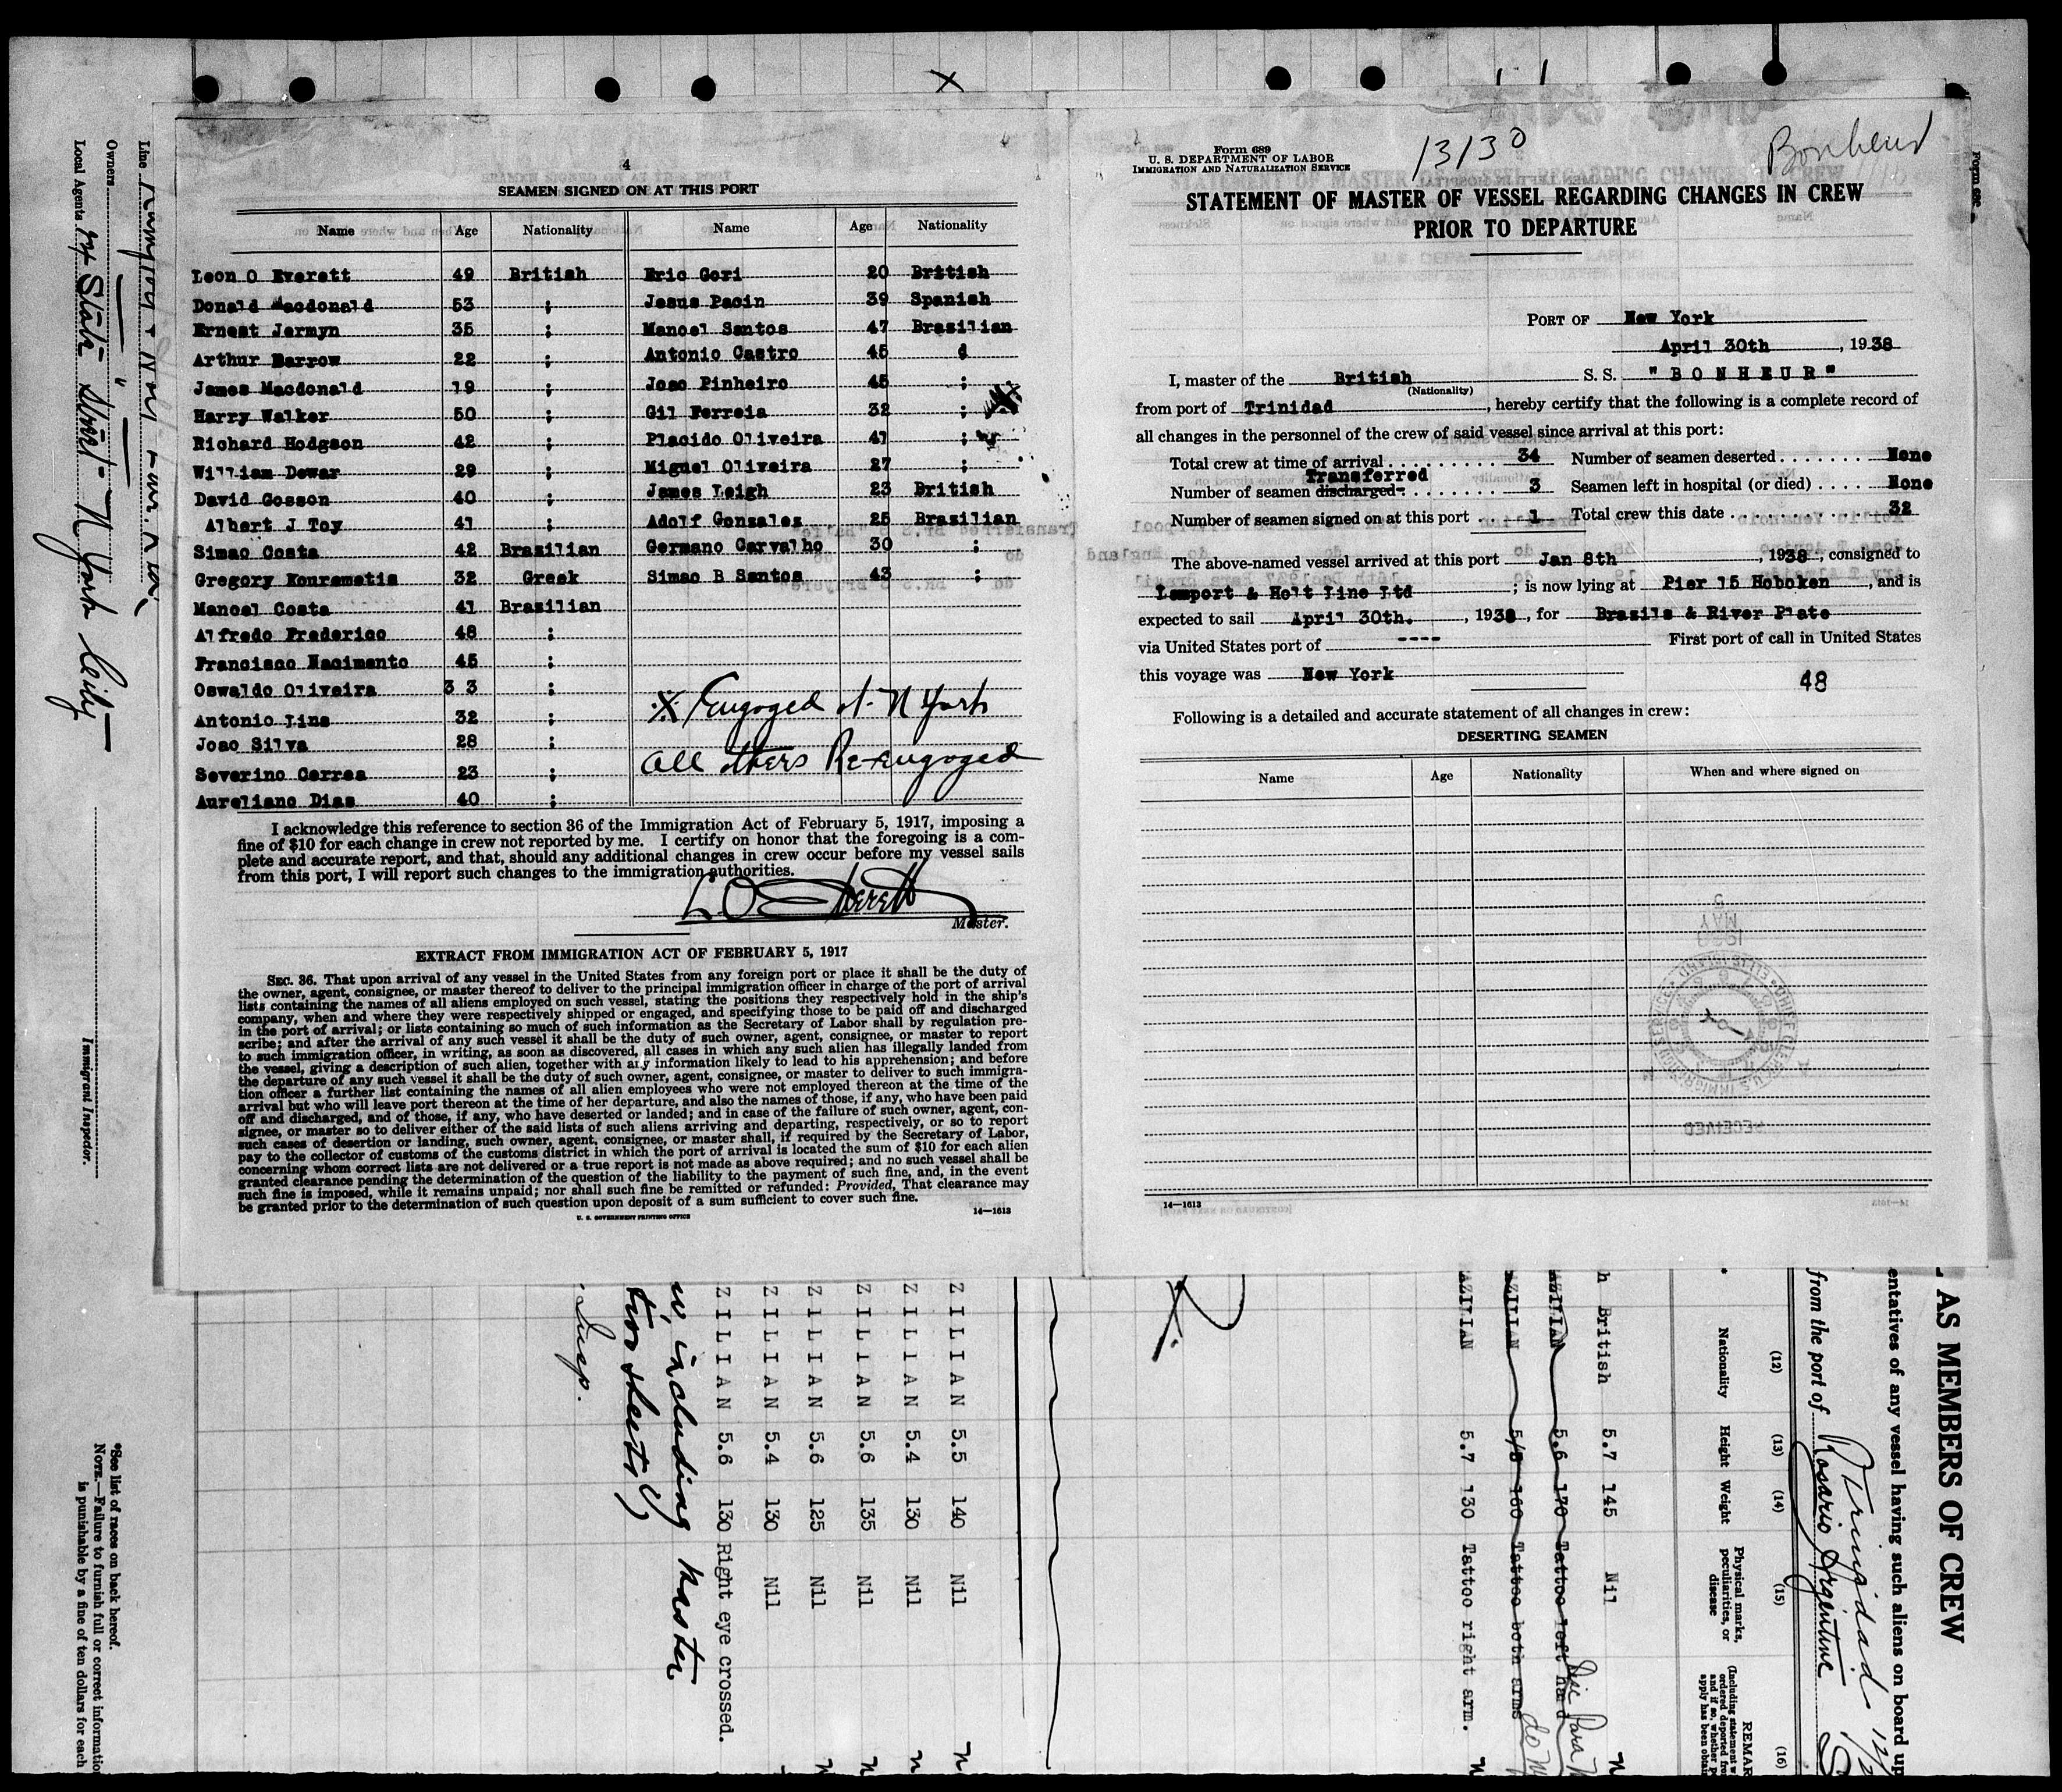 4
SEAMEN SIGNED ON AT THIS PORT
Name Age Nationality Name Age Nationality
Leon O Everett 49 British Eric Gori 20 British
Donald Macdonald 53 ; Jesus Pacin 39 Spanish
Ernest Jermyn 35 ; Manoel Santos 47 Brasilian
Arthur Barrow 22 ; Antonio Castro 45 d
James Macdonald 19 ; Joao Pinheiro 45 ;
Harry Walker 50 ; Gil Ferreia 32 ; X
Richard Hodgson 42 ; Placido Oliveira 41 ;
William Dewar 29 ; Miguel Oliveira 27 ;
David Gosson 40 ; James Leigh 23 British
Albert J Toy 41 ; Adolf Gonsales 25 Brasilian
Simao Costa 42 Brasilian Germano Carvalho 30 ;
Gregory Kouremetis 32 Greek Simao B Santos 43 ;
Manoel Costa 41 Brasilian
Alfredo Frederico 48 ;
Francisco Nacimento 45 ;
Oswaldo Oliveira 3 3 ;
Antonio Lins 32 ;
Joao Silva 28 ;
Severino Correa 23 ;
Aureliano Dias 40 ;
X Engaged at N York
all others Re-engaged
I acknowledge this reference to section 36 of the Immigration Act of February 5, 1917, imposing a
fine of $10 for each change in crew not reported by me. I certify on honor that the foregoing is a com-
plete and accurate report, and that, should any additional changes in crew occur before my vessel sails
from this port, I will report such changes to the immigration authorities.
L O Everett
Master.
EXTRACT FROM IMMIGRATION ACT OF FEBRUARY 5, 1917
SEC. 36. That upon arrival of any vessel in the United States from any foreign port or place it shall be the duty of
the owner, agent, consignee, or master thereof to deliver to the principal immigration officer in charge of the port of arrival
lists containing the names of all aliens employed on such vessel, stating the positions they respectively hold in the ship's
company, when and where they were respectively shipped or engaged, and specifying those to be paid off and discharged
in the port of arrival; or lists containing so much of such information as the Secretary of Labor shall by regulation pre-
scribe; and after the arrival of any such vessel it shall be the duty of such owner, agent, consignee, or master to report
to such immigration officer, in writing, as soon as discovered, all cases in which any such alien has illegally landed from
the vessel, giving a description of such alien, together with any information likely to lead to his apprehension; and before
the departure of any such vessel it shall be the duty of such owner, agent, consignee, or master to deliver to such immigra-
tion officer a further list containing the names of all alien employees who were not employed thereon at the time of the
arrival but who will leave port thereon at the time of her departure, and also the names of those, if any, who have been paid
off and discharged, and of those, if any, who have deserted or landed; and in case of the failure of such owner, agent, con-
signee, or master so to deliver either of the said lists of such aliens arriving and departing, respectively, or so to report
such cases of desertion or landing, such owner, agent, consignee, or master shall, if required by the Secretary of Labor,
pay to the collector of customs of the customs district in which the port of arrival is located the sum of $10 for each alien
concerning whom correct lists are not delivered or a true report is not made as above required; and no such vessel shall be
granted clearance pending the determination of the question of the liability to the payment of such fine, and, in the event
such fine is imposed, while it remains unpaid; nor shall such fine be remitted or refunded: Provided, That clearance may
be granted prior to the determination of such question upon deposit of a sum sufficient to cover such fine.
U. S. GOVERNMENT PRINTING OFFICE 14—1613
Form 689
U. S. DEPARTMENT OF LABOR
IMMIGRATION AND NATURALIZATION SERVICE
13130
Bonheur
STATEMENT OF MASTER OF VESSEL REGARDING CHANGES IN CREW
PRIOR TO DEPARTURE
PORT OF New York
April 30th, 1938
I, master of the British S. S. "BONHEUR"
(Nationality)
from port of Trinidad, hereby certify that the following is a complete record of
all changes in the personnel of the crew of said vessel since arrival at this port:
Total crew at time of arrival 34 Number of seamen deserted None
Transferred
Number of seamen discharged 3 Seamen left in hospital (or died) None
Number of seamen signed on at this port 1 Total crew this date 32
The above-named vessel arrived at this port Jan 8th, 1938, consigned to
Lamport & Holt Line Ltd; is now lying at Pier 15 Hoboken, and is
expected to sail April 30th., 1938, for Brazils & River Plate
via United States port of ---- First port of call in United States
this voyage was New York
48
Following is a detailed and accurate statement of all changes in crew:
DESERTING SEAMEN
Name Age Nationality When and where signed on
14—1613
Line
Owners "
Local Agents 24 State Street N York City
Immigrant Inspector.
*See list of races on back hereof.
NOTE.—Failure to furnish full or correct informatio
is punishable by a fine of ten dollars for each
ZILIAN 5.5 140 Nil
ZILIAN 5.4 130 Nil
ZILIAN 5.6 135 Nil
ZILIAN 5.6 125 Nil
ZILIAN 5.4 130 Nil
ZILIAN 5.6 130 Right eye crossed.
including master
two sheets)
Insp.
AS MEMBERS OF CREW
entatives of any vessel having such aliens on board up
from the port of Rosario Argentine
Trinidad
(12) (13) (14) (15) (16)
Nationality Height Weight Physical marks, peculiarities, or disease REMAR
h British 5.7 145 Nil
AZILIAN 5.6 170 Tattoo left hand
AZILIAN 5/8 160 Tattoo both arms
AZILIAN 5.7 130 Tattoo right arm.
Form 689